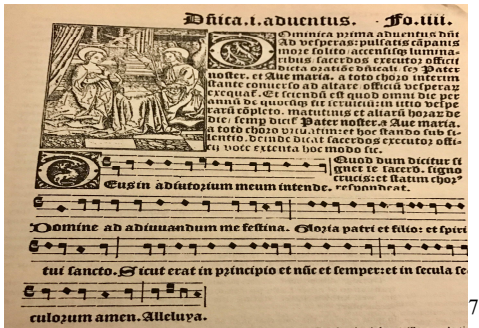 Dñica.i.aduentus. Fo.iiii.
Dominica prima aduentus dñi
Ad vesperas: pulsatis cāpanis
more solito accensisq; lumina-
ribus sacerdos executor officij
dicta oratiõe dñicali. scz Pater
noster. et Aue maria. a toto choro iterim
stante conuerso ad altare officiū vesperarū
exequat̄. Et sciendū est quod omni die per
annū de quocūq; fit seruiciū: in initio vespe-
rarū cōpleto. matutinis et aliarū horarū de
die: semp dicit̄ Pater noster. a Aue maria.
a toto choro priuatim: et hoc stando sub si-
lentio. deinde dicat sacerdos executor offi-
cij voce extenta hoc modo sic.
Quod dum dicitur si
gnet se sacerd. signo
crucis: et statim chor9
respondeat.
Deus in adiutorium meum intende.
Domine ad adiuuandum me festina. Gloria patri et filio: et spiri
tui sancto. Sicut erat in principio et nūc et semper: et in secula se
culorum amen. Alleluya.
7